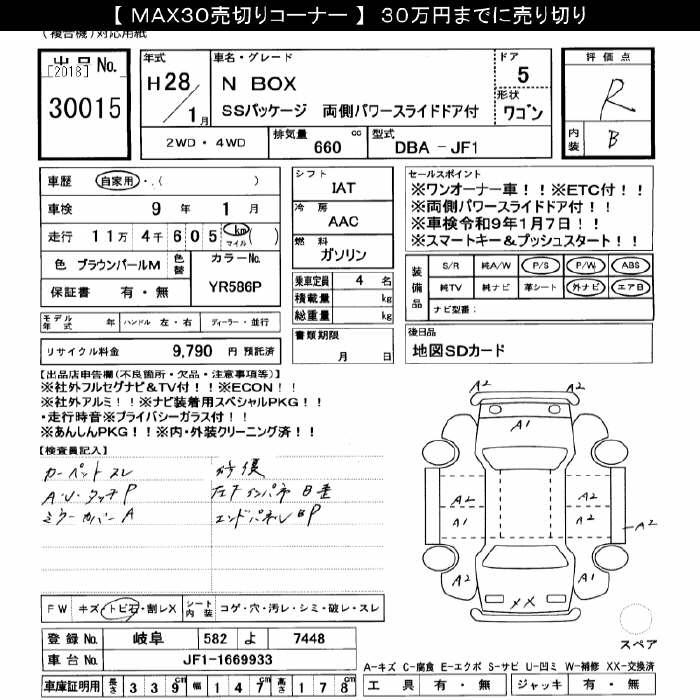 【 MAX30売切りコーナー 】 30万円までに売り切り
(複合機)対応用紙
出品No.
[2018]
30015
年式
H28/1月
車名・グレード
N BOX
SSパッケージ 両側パワースライドドア付
ドア
5
形状
ワゴン
評価点
R
内装
B
2WD・4WD
排気量 660 cc
型式 DBA - JF1
車歴 自家用・( )
車検 9年 1月
走行 11万 4千 6 0 5 km マイル ( )
色 ブラウンパールM
色替
カラーNo.
YR586P
保証書 有・無
シフト
IAT
冷房
AAC
燃料
ガソリン
乗車定員 4 名
積載量 kg
総重量 kg
書類期限
月 日
セールスポイント
※ワンオーナー車!!※ETC付!!
※両側パワースライドドア付!!
※車検令和9年1月7日!!
※スマートキー&プッシュスタート!!
装備品
S/R 純A/W P/S P/W ABS
純TV 純ナビ 革シート 外ナビ エアB
ナビ型番:
モデル年式 年 ハンドル 左・右 ディーラー・並行
リサイクル料金 9,790 円 預託済
後日品
地図SDカード
【出品店申告欄(不良箇所・欠品・注意事項等)】
※社外フルセグナビ&TV付!!※ECON!!
※社外アルミ!!※ナビ装着用スペシャルPKG!!
・走行時音※プライバシーガラス付!!
※あんしんPKG!!※内・外装クリーニング済!!
【検査員記入】
カーペットスレ
A.U.タッチP
ミラーカバーA
修復
エンドパネルBP
A2 A2
A1
A2 A2
A1 A2
A2
A2 A1
XX
FW キズ・トビ石・割レX
シート内装 コゲ・穴・汚レ・シミ・破レ・スレ
登録No. 岐阜 582 よ 7448
車台No. JF1-1669933
車庫証明用 長さ 3 3 9 cm 幅 1 4 7 cm 高さ 1 7 8 cm
スペア
A-キズ C-腐食 E-エクボ S-サビ U-凹ミ W-補修 XX-交換済
工具 有・無 ジャッキ 有・無